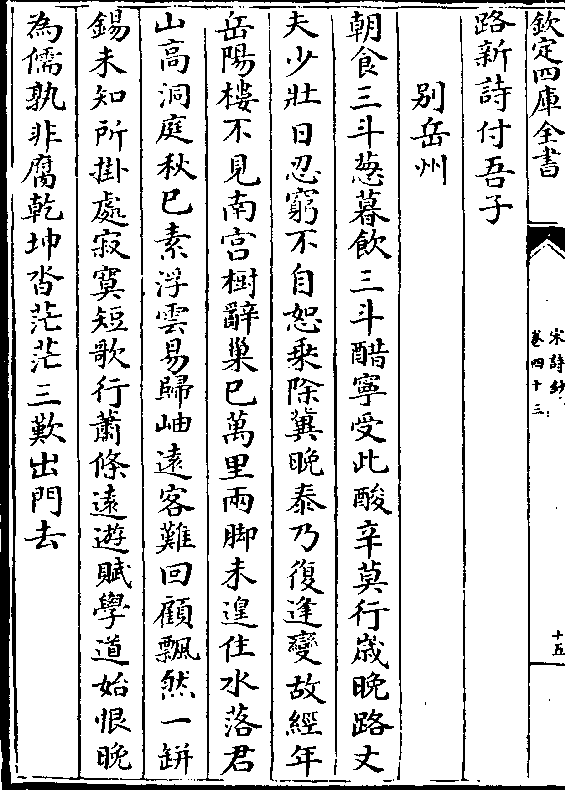 欽定四庫全書
宋詩鈔
卷四十三
十五
路新詩付吾子
別岳州
朝食三斗葱暮飲三斗醋寧受此酸辛莫行歳晚路丈
夫少壯日忍窮不自恕乗除冀晚泰乃復逢變故經年
岳陽樓不見南宫樹辭巢已萬里兩脚未遑住水落君
山髙洞庭秋已素浮雲易歸岫遠客難回顧飄然一缾
錫未知所掛處寂寞短歌行蕭條遠遊賦學道始恨晚
為儒孰非腐乾坤沓茫茫三歎出門去